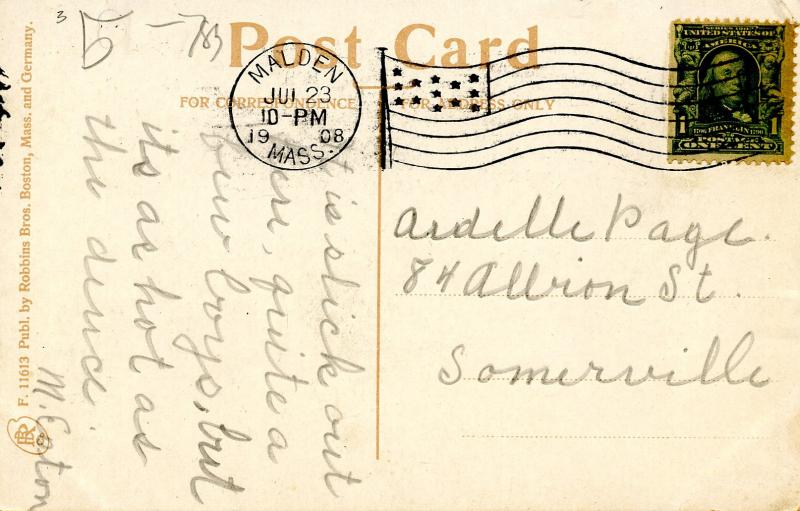 Post Card
FOR CORRESPONDENCE
FOR ADDRESS ONLY
MALDEN
JUL 23
10-PM
1908
MASS.
SERIES 1902
UNITED STATES OF AMERICA
1706 FRANKLIN 1790
1 1
POSTAGE
ONE CENT
Ardelle Page.
84 Albion St.
Somerville
is slick out
quite a
few boys, but
its as hot as
the deuce.
M. Eaton
F. 11613 Publ. by Robbins Bros. Boston, Mass. and Germany.
3